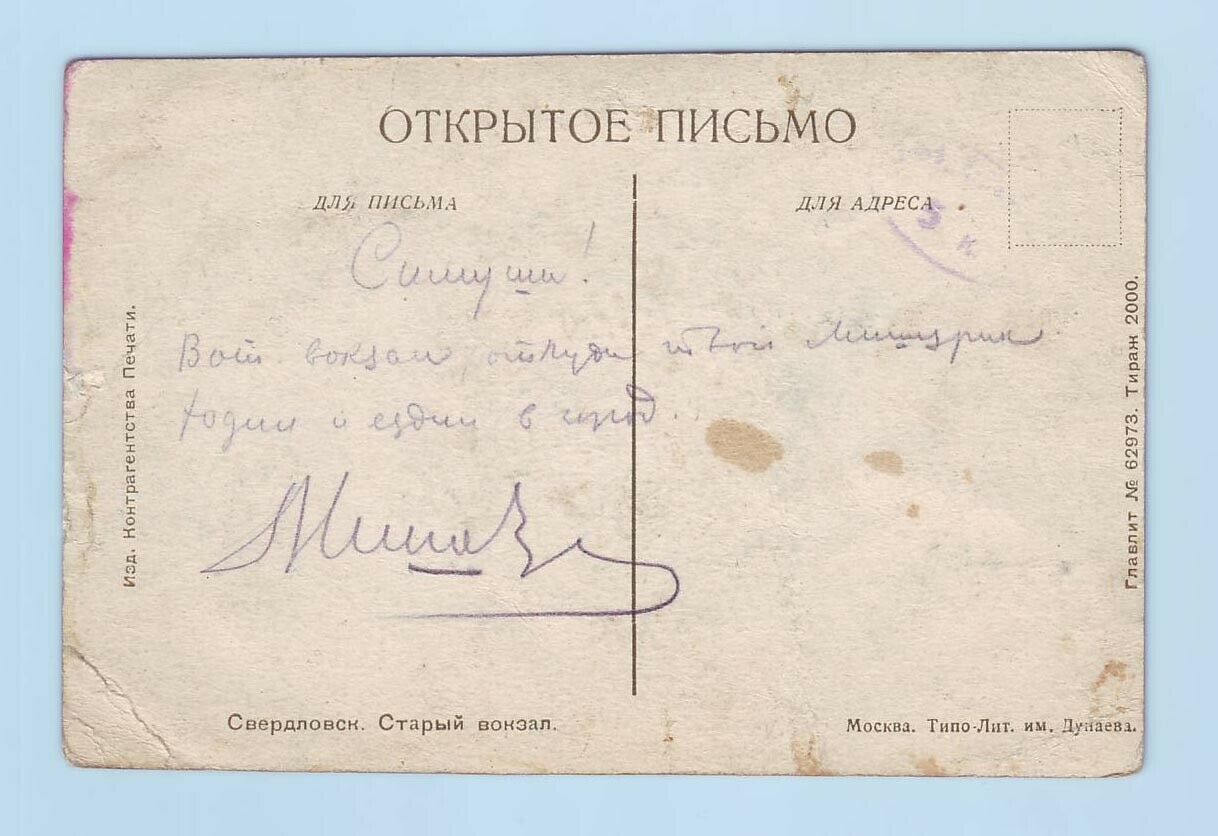 ОТКРЫТОЕ ПИСЬМО
ДЛЯ ПИСЬМА
ДЛЯ АДРЕСА
5 к
Симуша!
Вот вокзал откуда твой
ходил и ездил в город.
Изд. Контрагентства Печати.
Главлит № 62973. Тираж 2000.
Свердловск. Старый вокзал.
Москва. Типо-Лит. им. Дунаева.